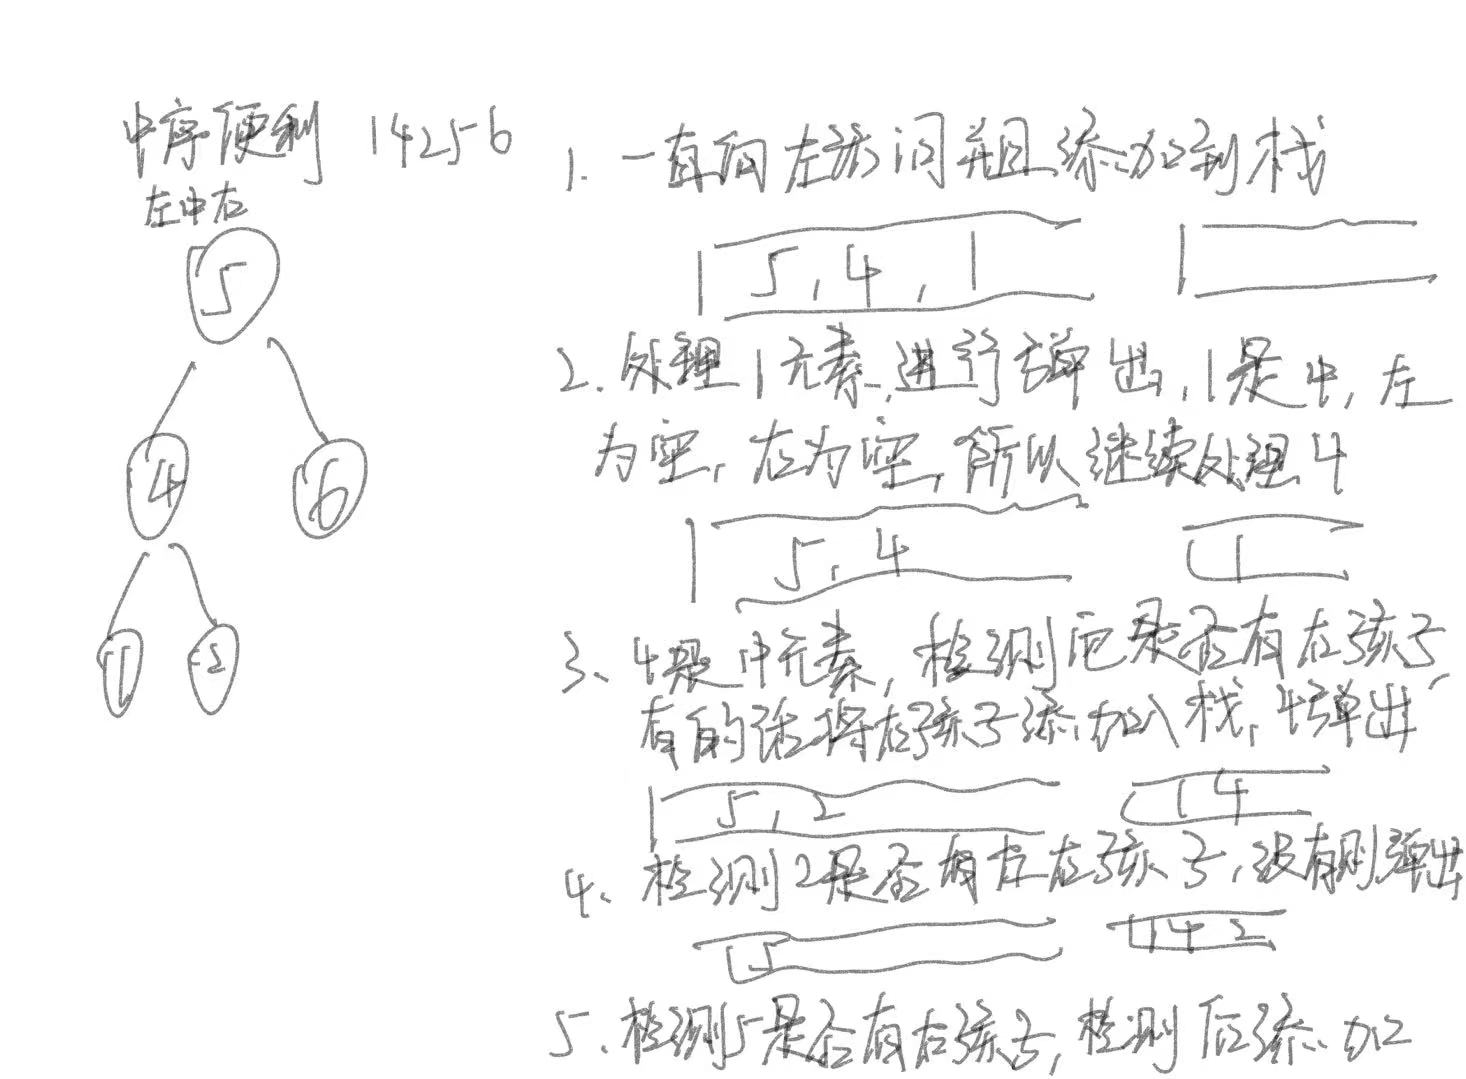 中序便利 14256
左中右
5
4
6
1
2
1. 一直向左访问并且添加到栈
5,4,1
2. 处理1元素,进行弹出,1是中,左
为空,右为空,所以继续处理4
5,4
1
3、4是中元素,检测它是否有右孩子
有的话将右孩子添加入栈,4弹出
5,2
14
4、检测2是否有左右孩子,没有则弹出
5
142
5、检测5是否有右孩子,检测后添加